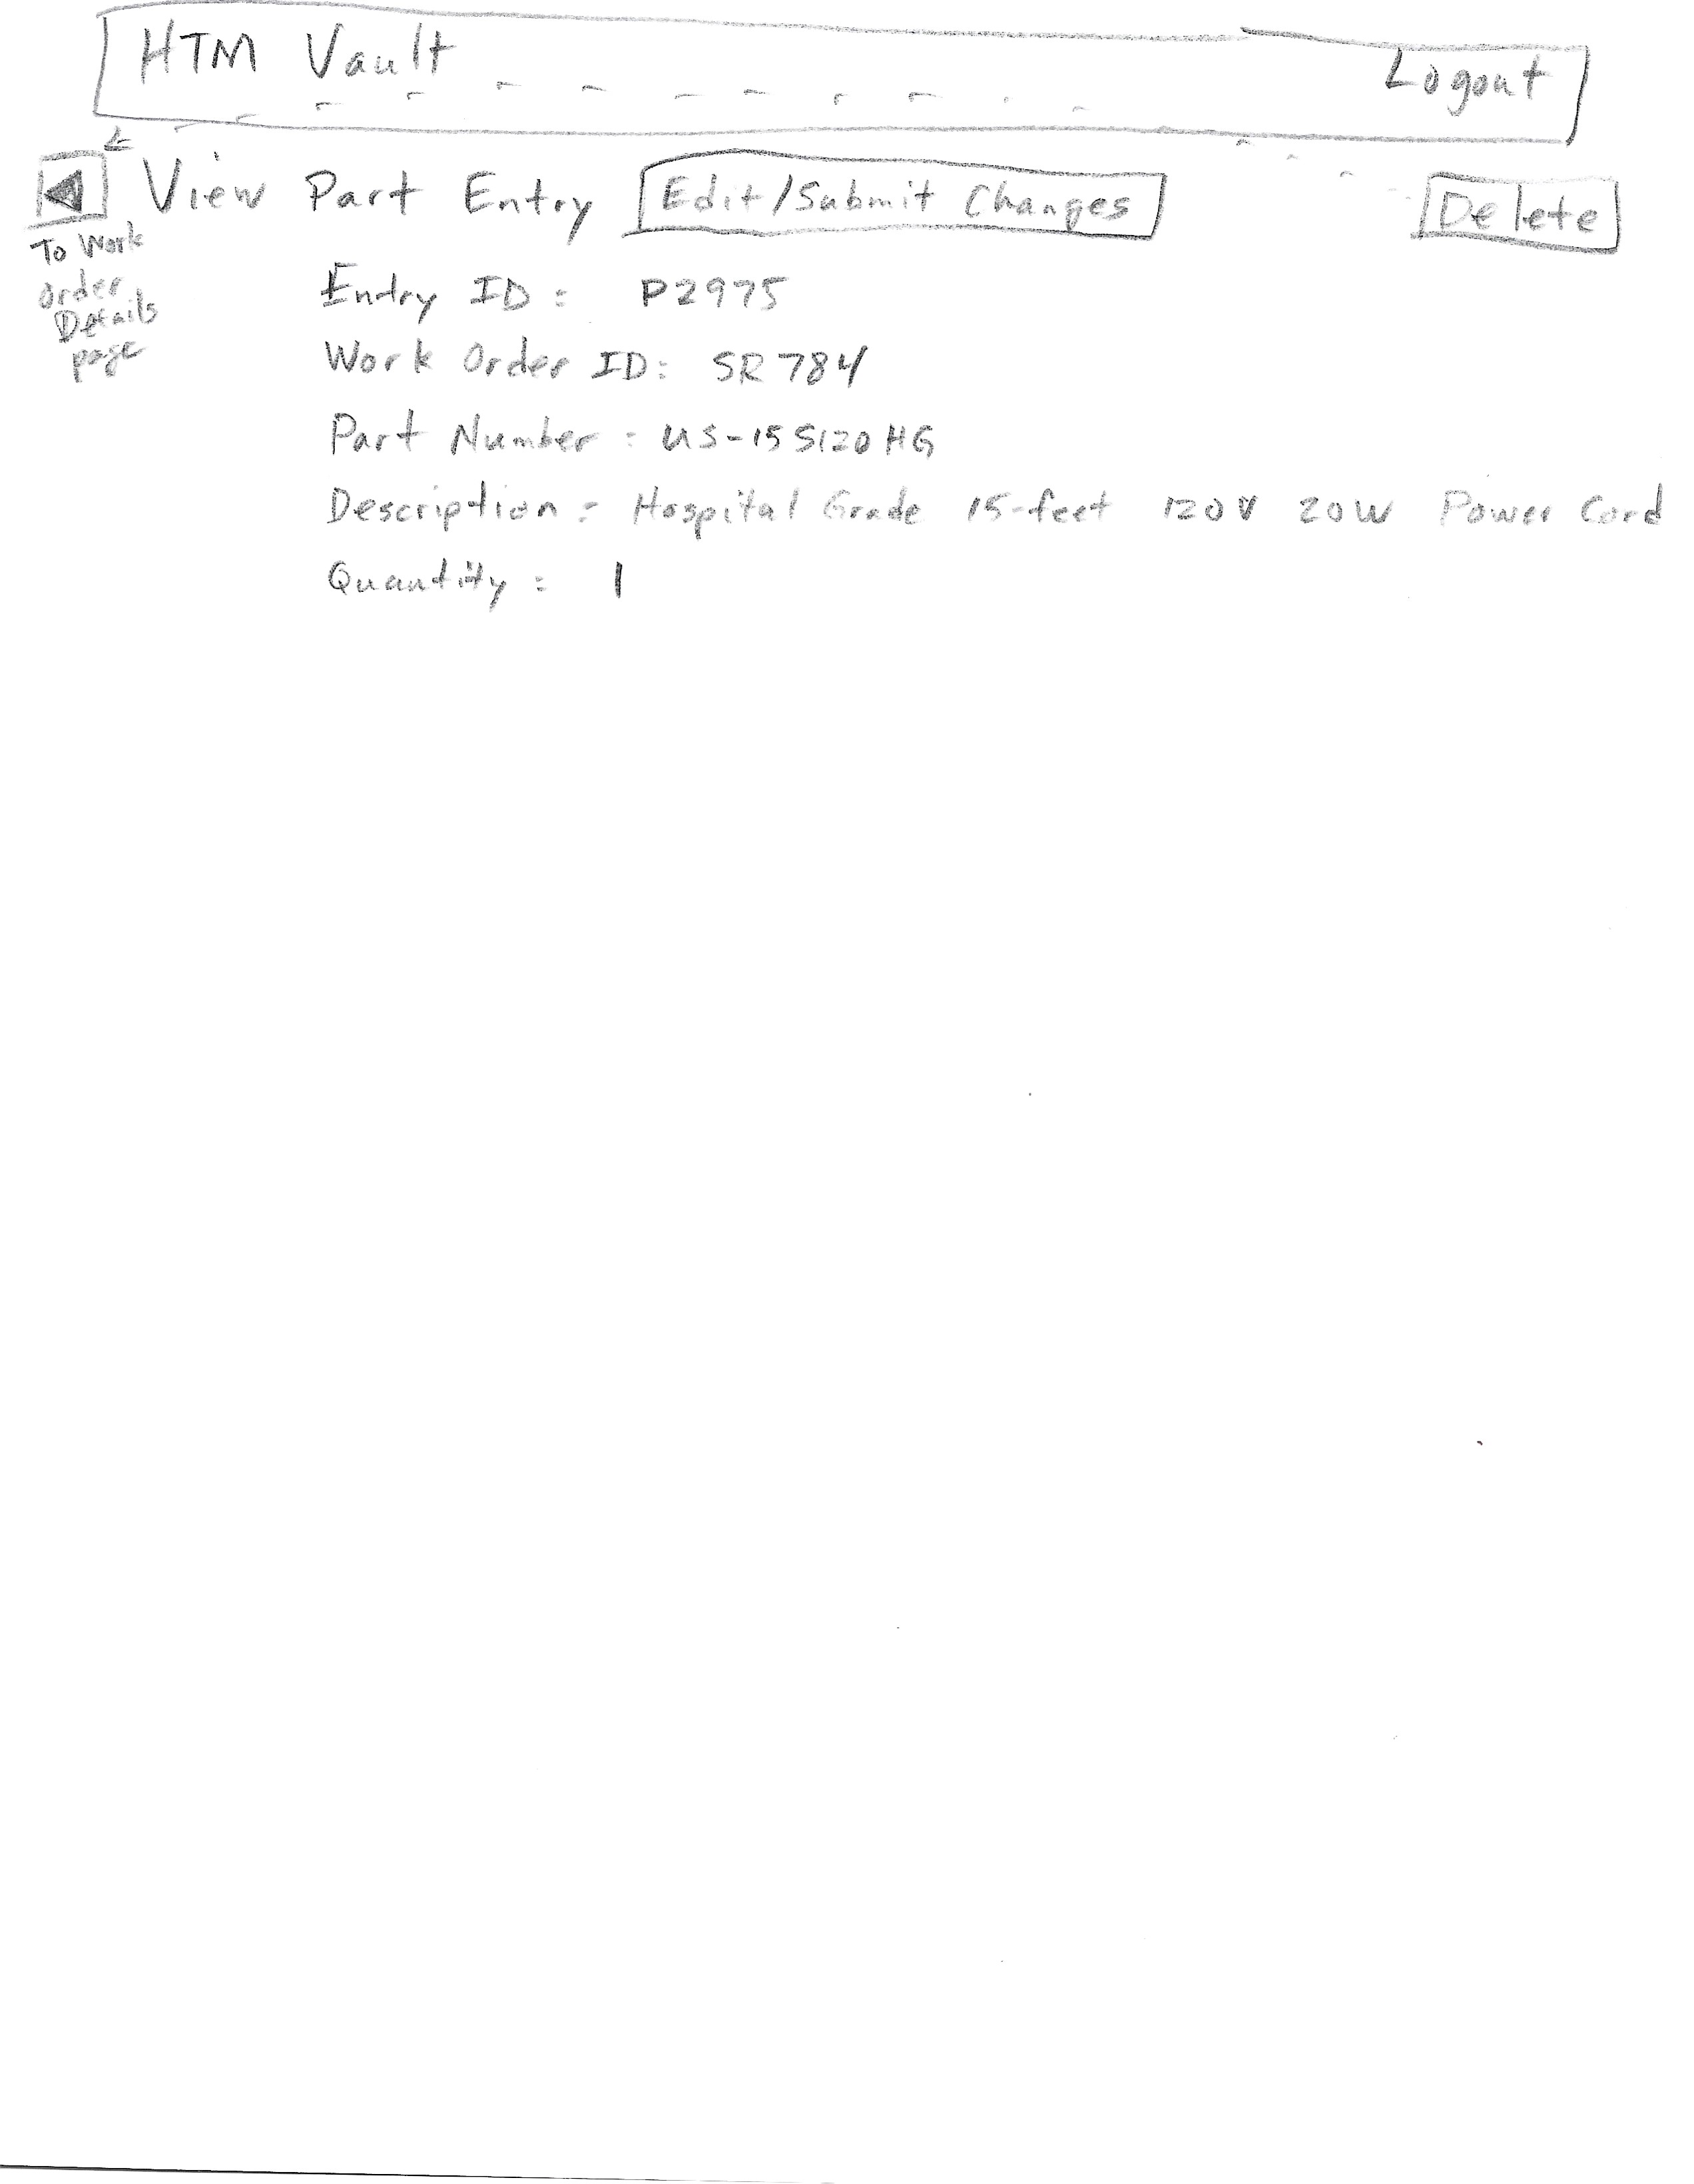 HTM Vault Logout
View Part Entry Edit/Submit Changes Delete
To Work
Order
Details
page
Entry ID: P2975
Work Order ID: SR784
Part Number: US-15S120HG
Description: Hospital Grade 15-feet 120V 20W Power Cord
Quantity: 1